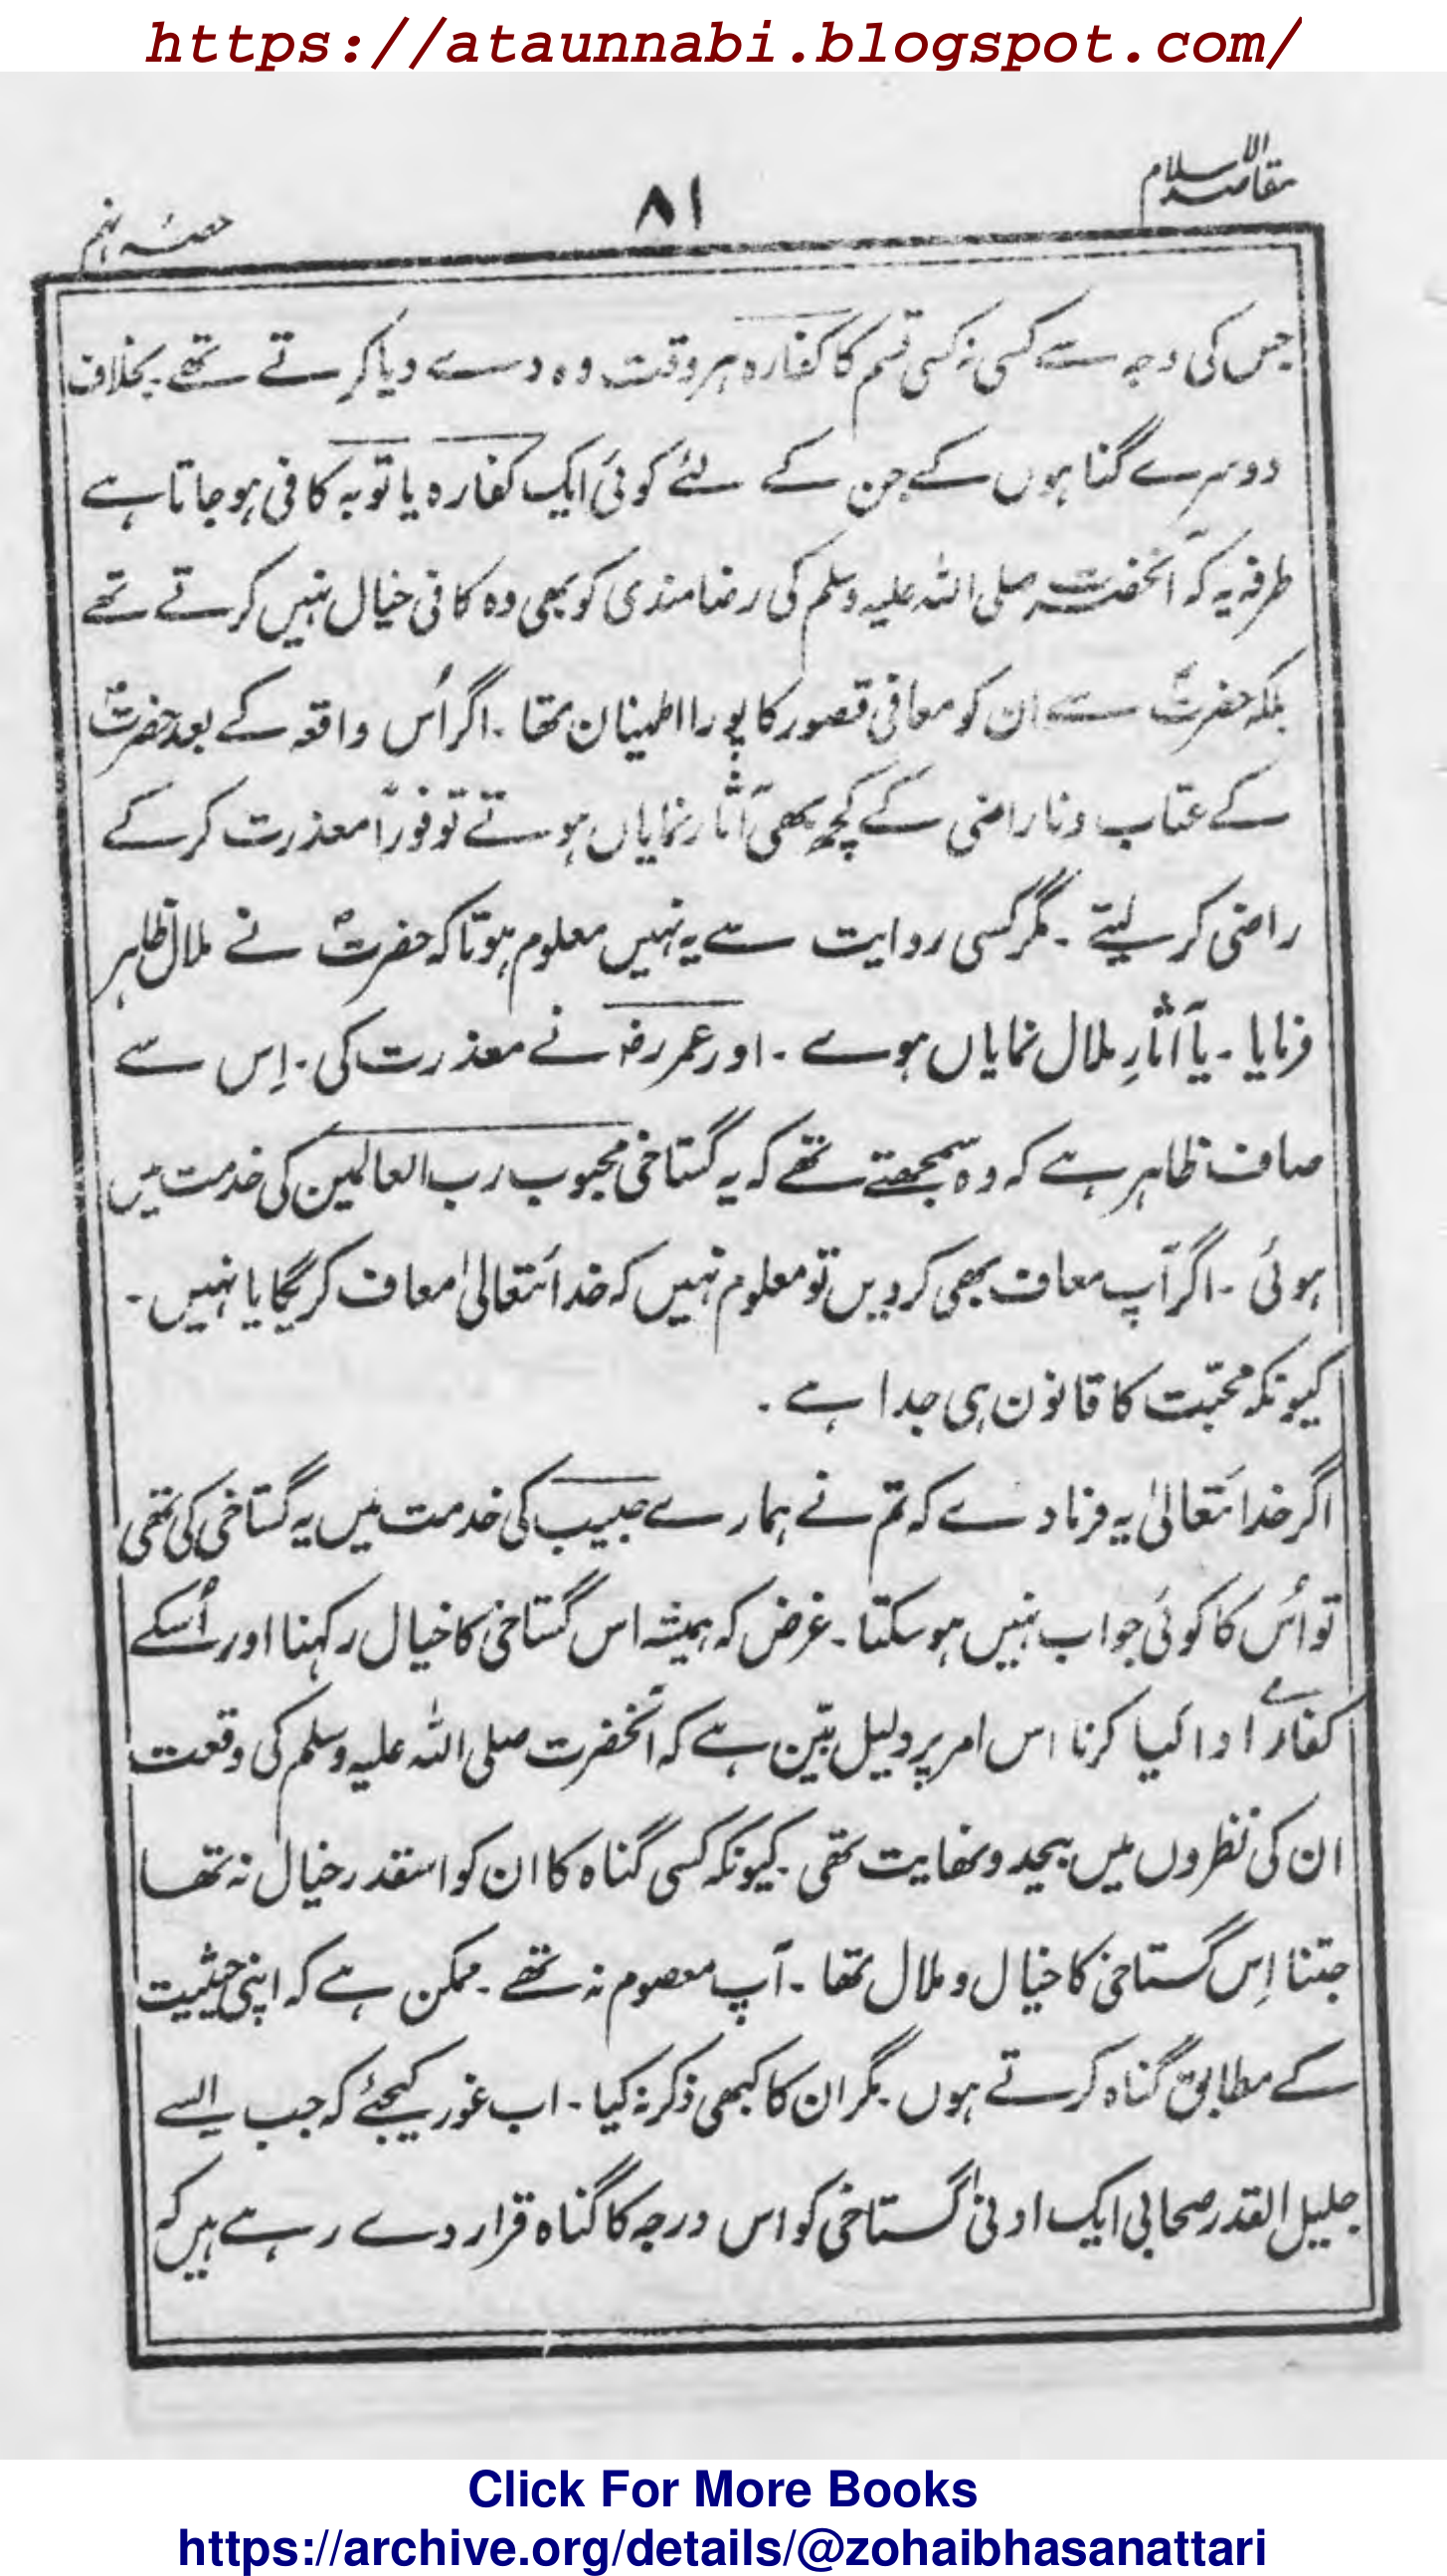 https://ataunnabi.blogspot.com/
مقاصد الاسلام
۸۱
حصۂ نہم
جس کی وجہ سے کسی نہ کسی قسم کا کفارہ ہر وقت وہ دے دیا کرتے تھے بخلاف
دوسرے گناہوں کے جن کے لئے کوئی ایک کفارہ یا توبہ کافی ہوجاتا ہے
طرفہ یہ کہ آنحضرت صلی اللہ علیہ وسلم کی رضامندی کو بھی وہ کافی خیال نہیں کرتے تھے
بلکہ حضرتؐ سے ان کو معافی قصور کا پورا اطمینان تھا ۔ اگر اُس واقعہ کے بعد حضرتؐ
کے عتاب و ناراضی کے کچھ بھی آثار نمایاں ہوتے تو فوراً معذرت کرکے
راضی کرلیتے ۔ مگر کسی روایت سے یہ نہیں معلوم ہوتا کہ حضرتؐ نے ملال ظاہر
فرمایا ۔ یا آثارِ ملال نمایاں ہوے ۔ اور عمر رضہ نے معذرت کی ۔ اِس سے
صاف ظاہر ہے کہ وہ سمجھتے تھے کہ یہ گستاخی محبوب رب العالمین کی خدمت میں
ہوئی ۔ اگر آپ معاف بھی کردیں تو معلوم نہیں کہ خدائتعالیٰ معاف کریگا یا نہیں ۔
کیونکہ محبّت کا قانون ہی جدا ہے ۔
اگر خدائتعالیٰ یہ فرمادے کہ تم نے ہمارے حبیب کی خدمت میں یہ گستاخی کی تھی
تو اُس کا کوئی جواب نہیں ہوسکتا ۔ غرض کہ ہمیشہ اس گستاخی کا خیال رکہنا اور اُسکے
کفارے ادا کیا کرنا اس امر پر دلیل بیّن ہے کہ آنحضرت صلی اللہ علیہ وسلم کی وقعت
ان کی نظروں میں بیحد و نہایت تھی ۔ کیونکہ کسی گناہ کا ان کو اسقدر خیال نہ تھا
جتنا اِس گستاخی کا خیال و ملال تھا ۔ آپ معصوم نہ تھے ۔ ممکن ہے کہ اپنی حیثیت
کے مطابق گناہ کرتے ہوں ۔ مگر ان کا کبھی ذکر نہ کیا ۔ اب غور کیجئے کہ جب ایسے
جلیل القدر صحابی ایک ادنیٰ گستاخی کو اس درجہ کا گناہ قرار دے رہے ہیں کہ
Click For More Books
https://archive.org/details/@zohaibhasanattari